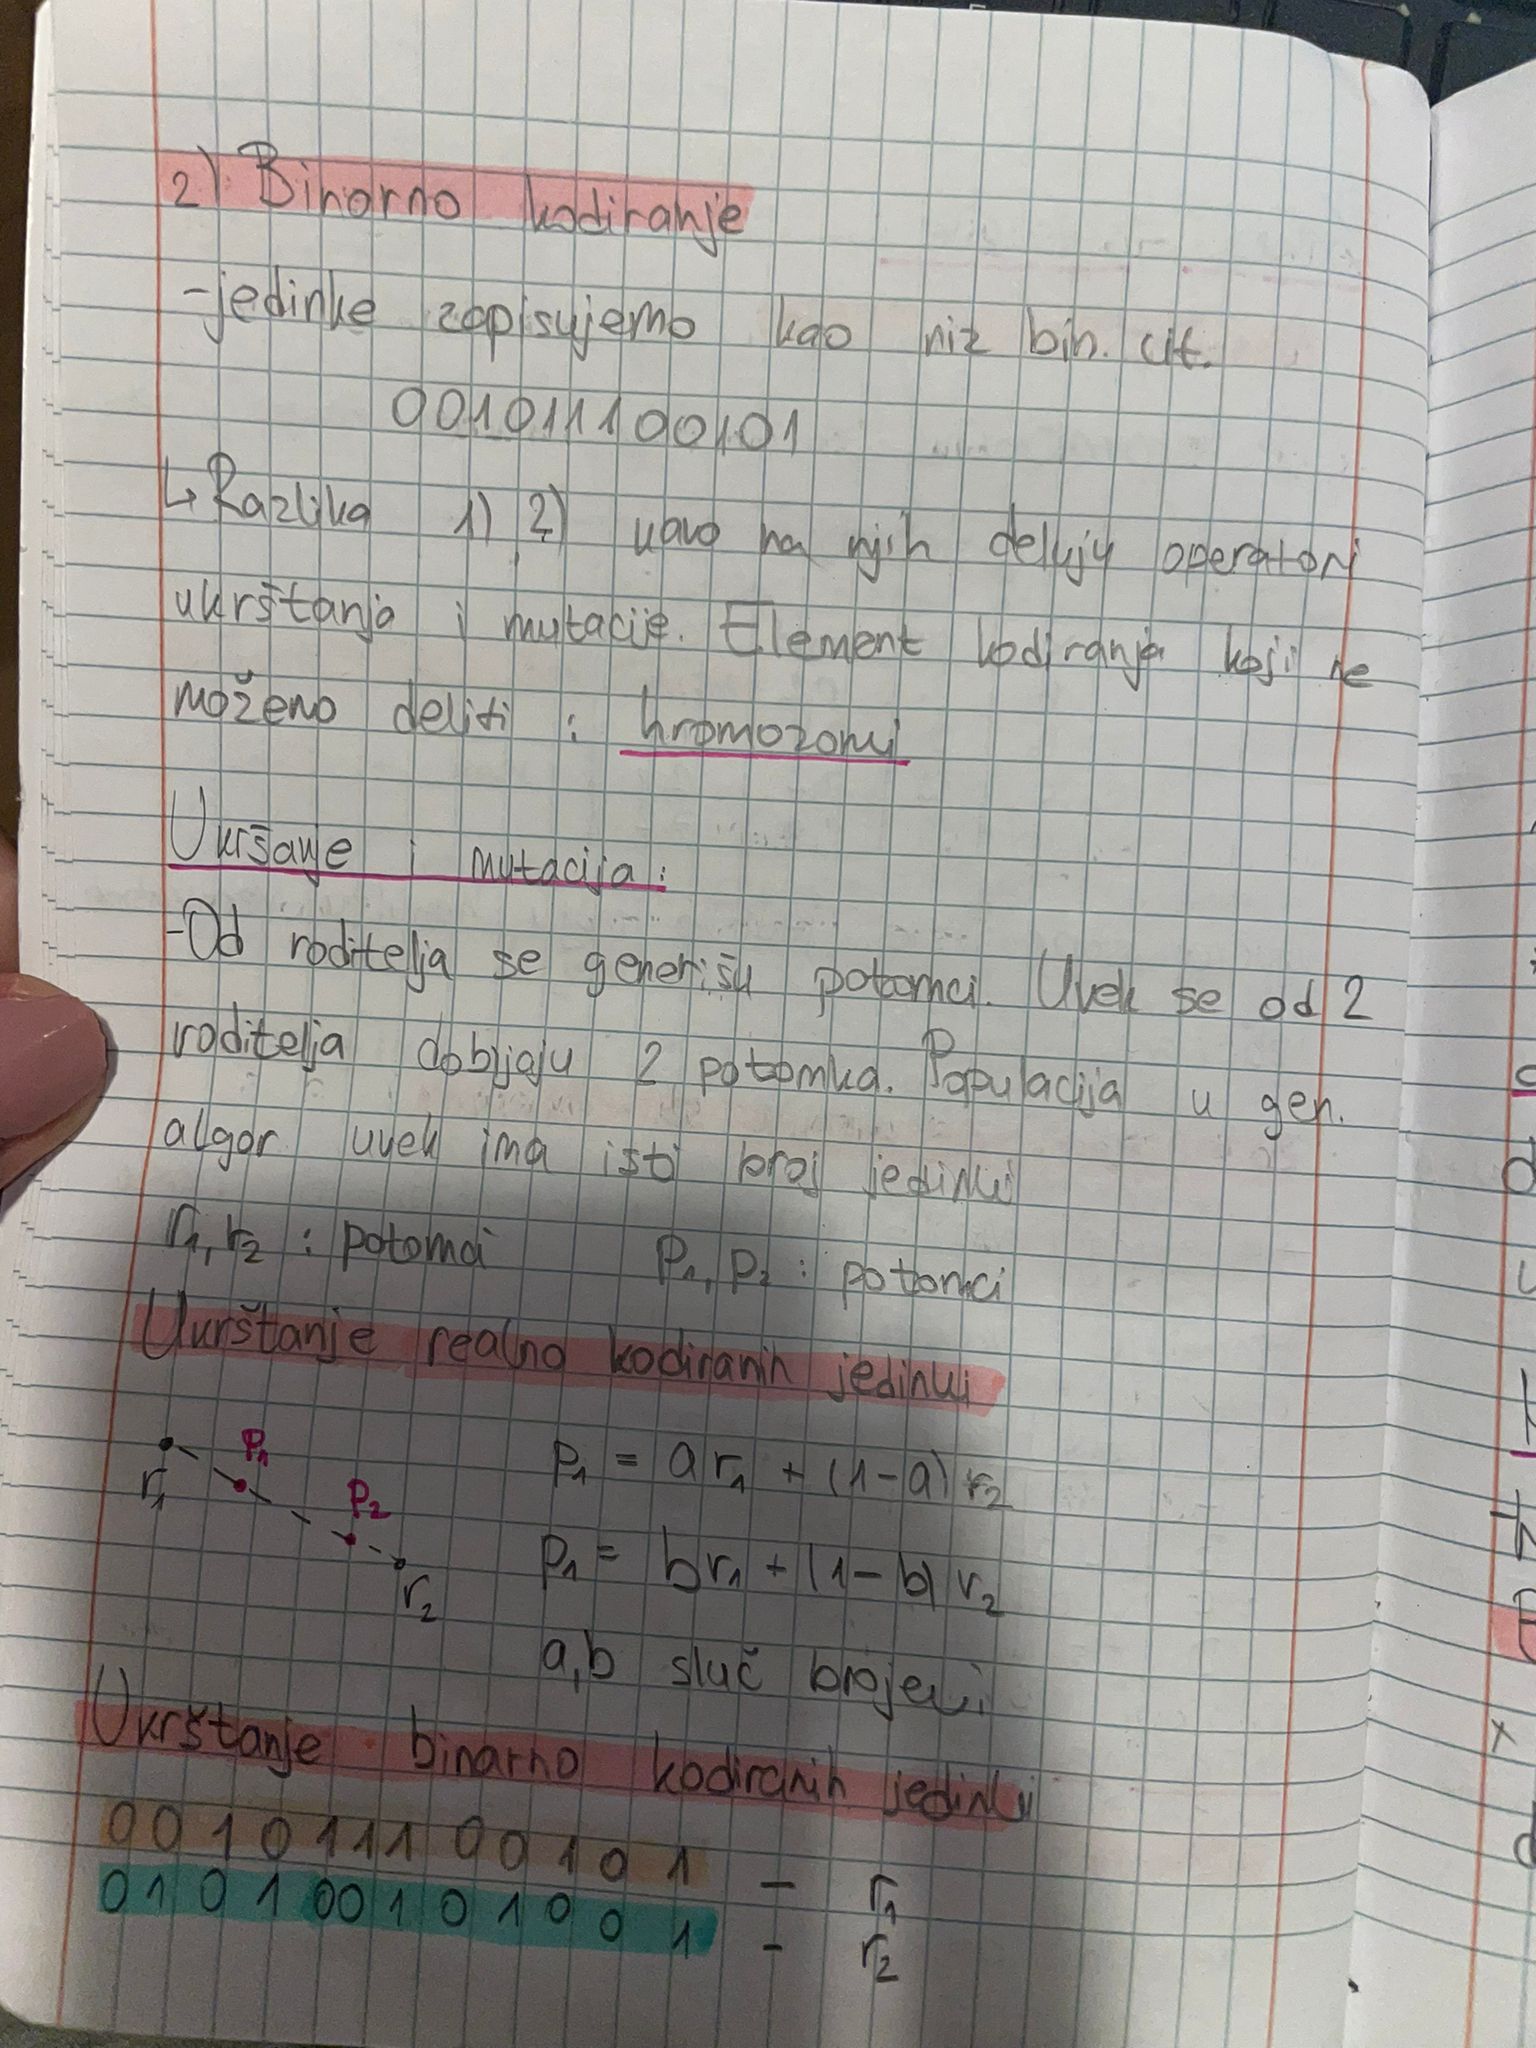 2) Binarno kodiranje
-jedinke zapisujemo kao niz bin. cif.
001011100101
↳ Razlika 1) 2) kako na njih deluju operatori
ukrštanja i mutacije. Element kodiranja koji ne
možemo deliti : hromozomi
Ukršanje i mutacija:
-Od roditelja se generišu potomci. Uvek se od 2
roditelja dobijaju 2 potomka. Populacija u gen.
algor uvek ima isti broj jedinki
r1, r2 : potomci P1, P2 : potomci
Ukrštanje realno kodiranih jedinki
P1 = a r1 + (1-a) r2
r1 P1 P2 r2
P1 = b r1 + (1-b) r2
a,b sluč brojevi
Ukrštanje binarno kodiranih jedinki
0 0 1 0 1 1 1 0 0 1 0 1 - r1
0 1 0 1 0 0 1 0 1 0 0 1 - r2